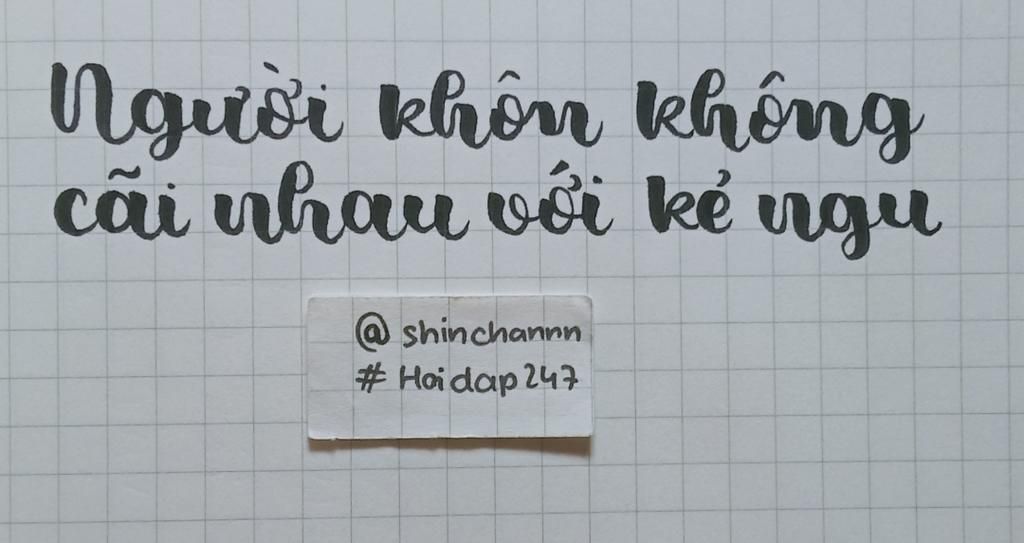 Người khôn không
cãi nhau với kẻ ngu
@ shinchannn
# Hoidap247